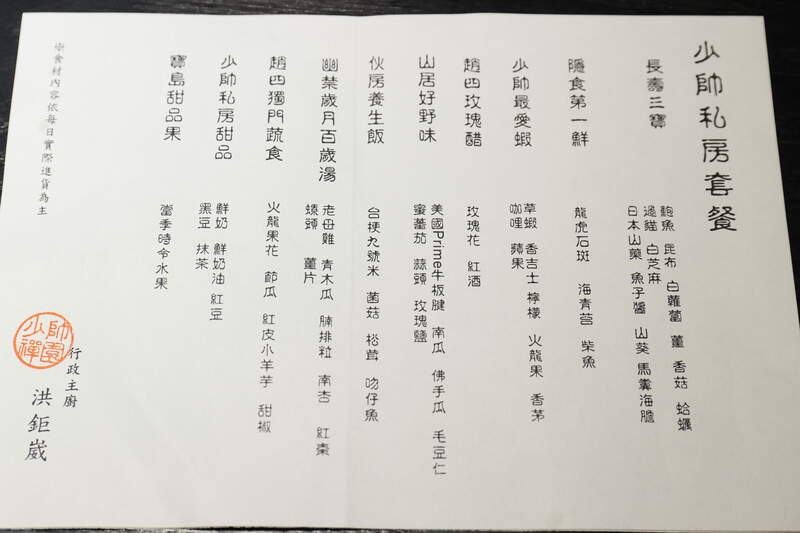 少帥私房套餐
長壽三寶
鮑魚 昆布 白蘿蔔 薑 香菇 蛤蠣
過貓 白芝麻
日本山藥 魚子醬 山葵 馬糞海膽
隱食第一鮮
龍虎石斑 海青菩 柴魚
少帥最愛蝦
草蝦 香吉士 檸檬 火龍果 香茅
咖哩 蘋果
趙四玫瑰醋
玫瑰花 紅酒
山居好野味
美國Prime牛板腱 南瓜 佛手瓜 毛豆仁
蜜蕃茄 蒜頭 玫瑰鹽
伙房養生飯
台梗九號米 菌菇 松茸 吻仔魚
幽禁歲月百歲湯
老母雞 青木瓜 腩排粒 南杏 紅棗
螓頭 薑片
趙四獨門蔬食
火龍果花 節瓜 紅皮小羊芋 甜椒
少帥私房甜品
鮮奶 鮮奶油 紅豆
黑豆 抹茶
寶島甜品果
當季時令水果
※食材內容依每日實際進貨為主
少帥禪園
行政主廚
洪鉅崴